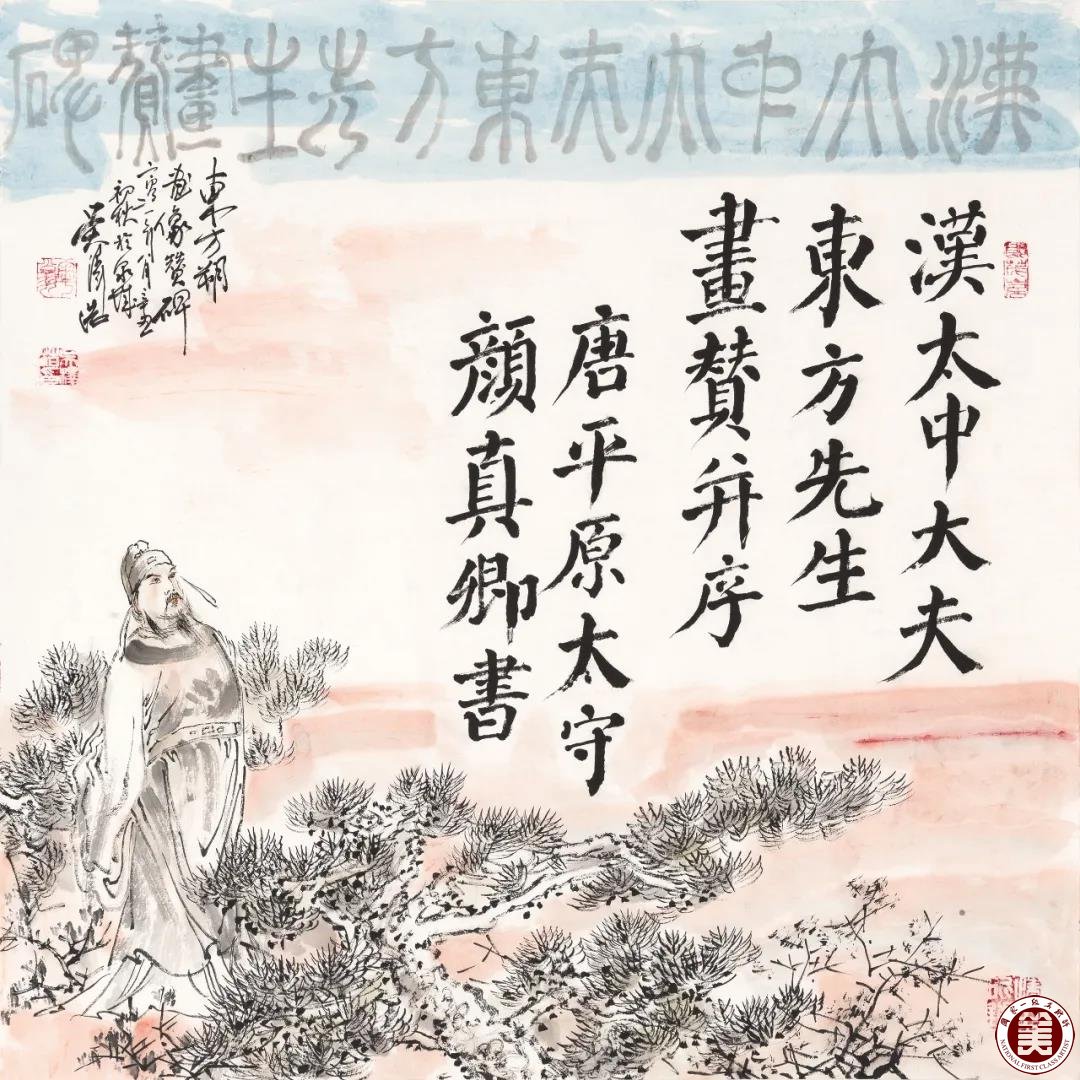 漢大中大夫東方先生畫贊碑
漢太中大夫
東方先生
畫贊并序
唐平原太守
顏真卿書
東方朔
畫像贊碑
初秋於泉城
吳澤浩
美
NATIONAL FIRST CLASS ARTIST